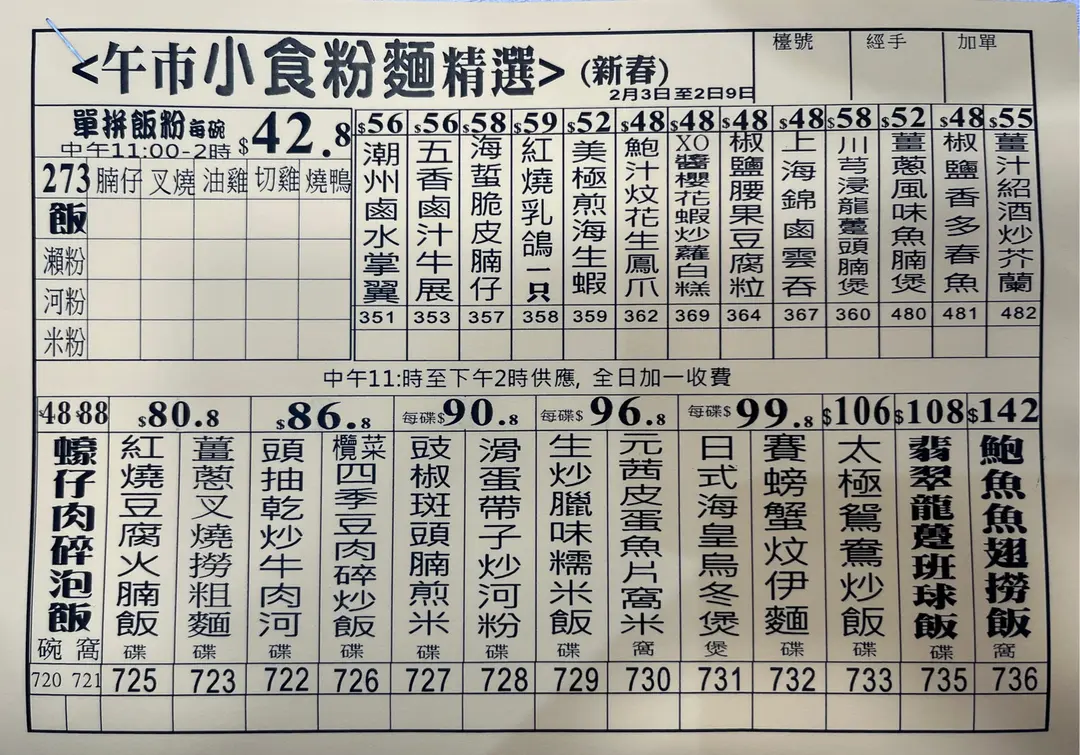 <午市小食粉麵精選> (新春)
2月3日至2日9日
檯號 經手 加單
單拼飯粉每碗 $42.8
中午11:00-2時
273 腩仔 叉燒 油雞 切雞 燒鴨
飯
瀨粉
河粉
米粉
$56 潮州鹵水掌翼 351
$56 五香鹵汁牛展 353
$58 海蜇脆皮腩仔 357
$59 紅燒乳鴿一只 358
$52 美極煎海生蝦 359
$48 鮑汁炆花生鳳爪 362
$48 XO醬櫻花蝦炒蘿白糕 369
$48 椒鹽腰果豆腐粒 364
$48 上海錦鹵雲吞 367
$58 川芎浸龍躉頭腩煲 360
$52 薑蔥風味魚腩煲 480
$48 椒鹽香多春魚 481
$55 薑汁紹酒炒芥蘭 482
中午11:時至下午2時供應, 全日加一收費
$48 $88 蠔仔肉碎泡飯 碗 窩 720 721
$80.8
紅燒豆腐火腩飯 碟 725
薑蔥叉燒撈粗麵 碟 723
$86.8
頭抽乾炒牛肉河 碟 722
欖菜四季豆肉碎炒飯 碟 726
每碟$90.8
豉椒斑頭腩煎米 碟 727
滑蛋帶子炒河粉 碟 728
每碟$96.8
生炒臘味糯米飯 碟 729
元茜皮蛋魚片窩米 窩 730
每碟$99.8
日式海皇烏冬煲 煲 731
賽螃蟹炆伊麵 碟 732
$106 太極鴛鴦炒飯 碟 733
$108 翡翠龍躉班球飯 碟 735
$142 鮑魚魚翅撈飯 窩 736